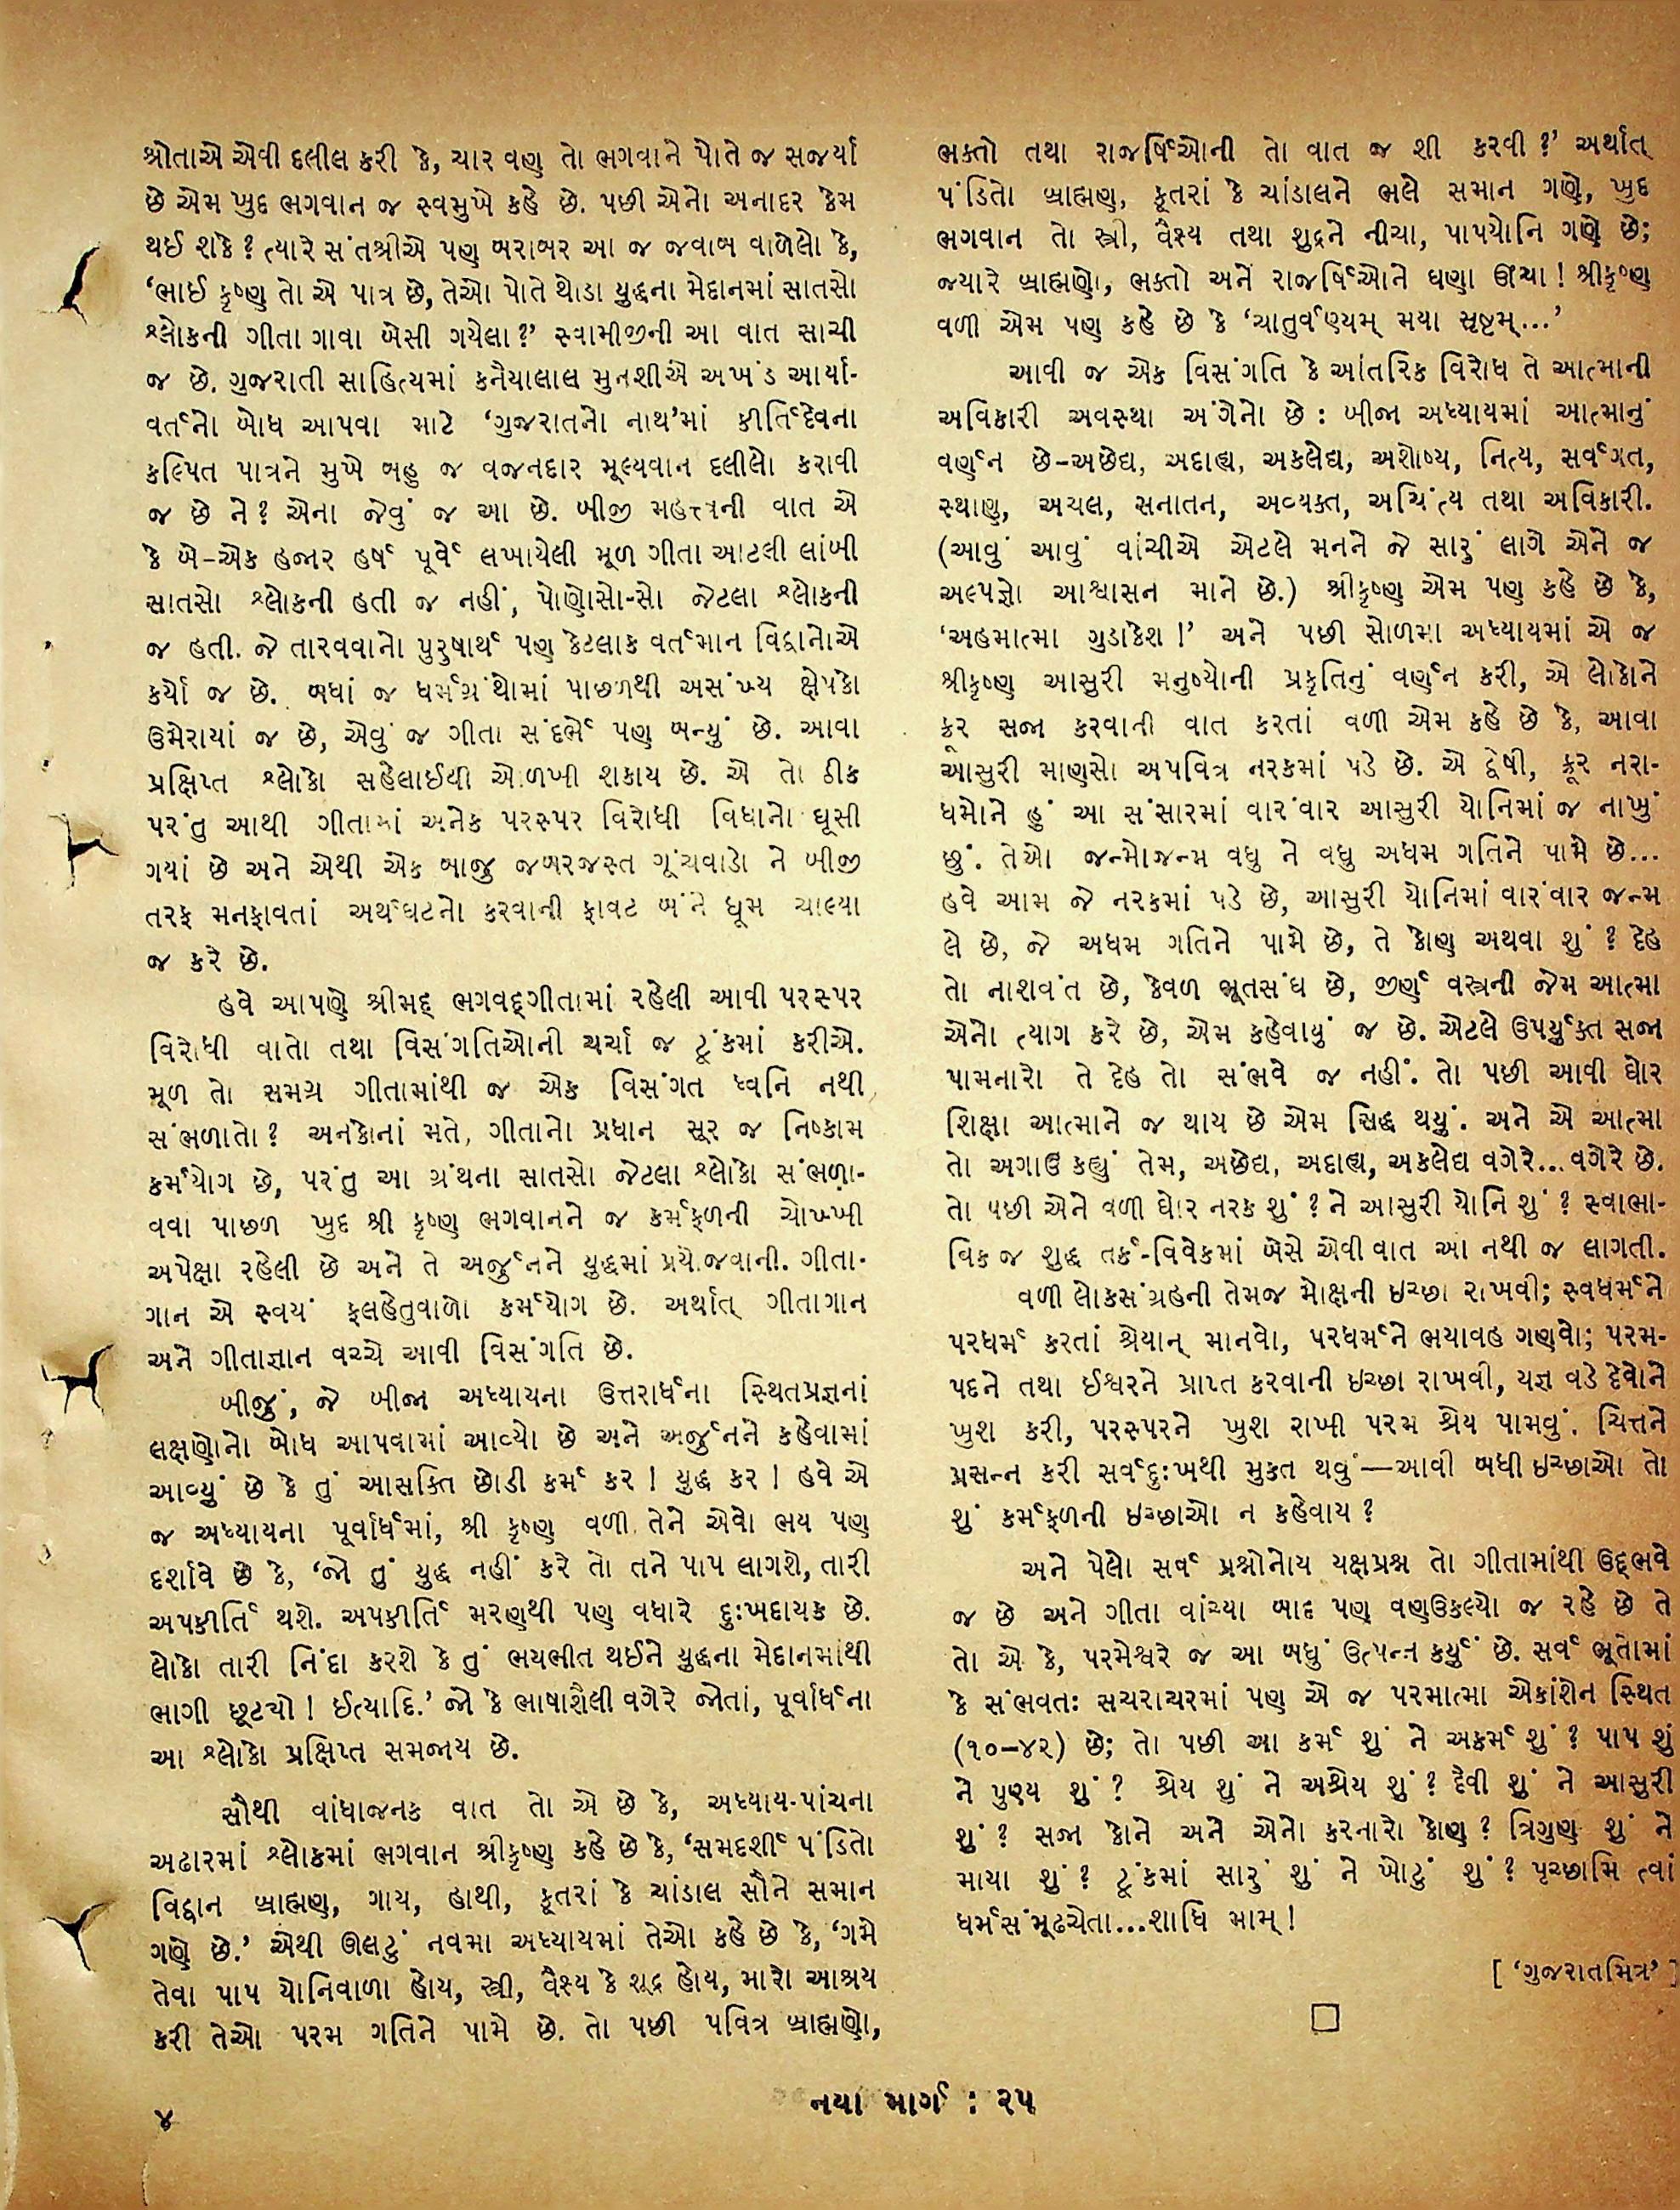 શ્રોતાએ એવી દલીલ કરી કે, ચાર વર્ણ તો ભગવાને પોતે જ સર્જ્યા
છે એમ ખુદ ભગવાન જ સ્વમુખે કહે છે. પછી એનો અનાદર કેમ
થઈ શકે? ત્યારે સંતશ્રીએ પણ બરાબર આ જ જવાબ વાળેલો કે,
‘ભાઈ કૃષ્ણ તો એ પાત્ર છે, તેઓ પોતે થોડા યુદ્ધના મેદાનમાં સાતસો
શ્લોકની ગીતા ગાવા બેસી ગયેલા?’ સ્વામીજીની આ વાત સાચી
જ છે. ગુજરાતી સાહિત્યમાં કનૈયાલાલ મુનશીએ અખંડ આર્યા-
વર્તનો બોધ આપવા માટે ‘ગુજરાતનો નાથ’માં કીર્તિદેવના
કલ્પિત પાત્રને મુખે બહુ જ વજનદાર મૂલ્યવાન દલીલો કરાવી
જ છે ને? એના જેવું જ આ છે. બીજી મહત્ત્વની વાત એ
કે બે-એક હજાર હર્ષ પૂર્વે લખાયેલી મૂળ ગીતા આટલી લાંબી
સાતસો શ્લોકની હતી જ નહીં, પોણોસો-સો જેટલા શ્લોકની
જ હતી. જે તારવવાનો પુરુષાર્થ પણ કેટલાક વર્તમાન વિદ્વાનોએ
કર્યો જ છે. બધાં જ ધર્મગ્રંથોમાં પાછળથી અસંખ્ય ક્ષેપકો
ઉમેરાયાં જ છે, એવું જ ગીતા સંદર્ભે પણ બન્યું છે. આવા
પ્રક્ષિપ્ત શ્લોકો સહેલાઈથી ઓળખી શકાય છે. એ તો ઠીક
પરંતુ આથી ગીતામાં અનેક પરસ્પર વિરોધી વિધાનો ઘૂસી
ગયાં છે અને એથી એક બાજુ જબરજસ્ત ગૂંચવાડો ને બીજી
તરફ મનફાવતાં અર્થઘટનો કરવાની ફાવટ બંને ધૂમ ચાલ્યા
જ કરે છે.
હવે આપણે શ્રીમદ્ ભગવદ્ગીતામાં રહેલી આવી પરસ્પર
વિરોધી વાતો તથા વિસંગતિઓની ચર્ચા જ ટૂંકમાં કરીએ.
મૂળ તો સમગ્ર ગીતામાંથી જ એક વિસંગત ધ્વનિ નથી
સંભળાતો? અનેકોનાં મતે, ગીતાનો પ્રધાન સૂર જ નિષ્કામ
કર્મયોગ છે, પરંતુ આ ગ્રંથના સાતસો જેટલા શ્લોકો સંભળા-
વવા પાછળ ખુદ શ્રી કૃષ્ણ ભગવાનને જ કર્મફળની ચોખ્ખી
અપેક્ષા રહેલી છે અને તે અર્જુનને યુદ્ધમાં પ્રયોજવાની. ગીતા-
ગાન એ સ્વયં ફલહેતુવાળો કર્મયોગ છે. અર્થાત્ ગીતાગાન
અને ગીતાજ્ઞાન વચ્ચે આવી વિસંગતિ છે.
બીજું, જે બીજા અધ્યાયના ઉત્તરાર્ધના સ્થિતપ્રજ્ઞનાં
લક્ષણોનો બોધ આપવામાં આવ્યો છે અને અર્જુનને કહેવામાં
આવ્યું છે કે તું આસક્તિ છોડી કર્મ કર! યુદ્ધ કર! હવે એ
જ અધ્યાયના પૂર્વાર્ધમાં, શ્રી કૃષ્ણ વળી તેને એવો ભય પણ
દર્શાવે છે કે, ‘જો તું યુદ્ધ નહીં કરે તો તને પાપ લાગશે, તારી
અપકીર્તિ થશે. અપકીર્તિ મરણથી પણ વધારે દુઃખદાયક છે.
લોકો તારી નિંદા કરશે કે તું ભયભીત થઈને યુદ્ધના મેદાનમાંથી
ભાગી છૂટયો! ઈત્યાદિ.’ જો કે ભાષાશૈલી વગેરે જોતાં, પૂર્વાર્ધના
આ શ્લોકો પ્રક્ષિપ્ત સમજાય છે.
સૌથી વાંધાજનક વાત તો એ છે કે, અધ્યાય-પાંચના
અઢારમાં શ્લોકમાં ભગવાન શ્રીકૃષ્ણ કહે છે કે, ‘સમદર્શી પંડિતો
વિદ્વાન બ્રાહ્મણ, ગાય, હાથી, કૂતરાં કે ચાંડાલ સૌને સમાન
ગણે છે.’ એથી ઊલટું નવમા અધ્યાયમાં તેઓ કહે છે કે, ‘ગમે
તેવા પાપ યોનિવાળા હોય, સ્ત્રી, વૈશ્ય કે શૂદ્ર હોય, મારો આશ્રય
કરી તેઓ પરમ ગતિને પામે છે. તો પછી પવિત્ર બ્રાહ્મણો,
ભક્તો તથા રાજર્ષિઓની તો વાત જ શી કરવી?’ અર્થાત્
પંડિતો બ્રાહ્મણ, કૂતરાં કે ચાંડાલને ભલે સમાન ગણે, ખુદ
ભગવાન તો સ્ત્રી, વૈશ્ય તથા શુદ્રને નીચા, પાપયોનિ ગણે છે;
જ્યારે બ્રાહ્મણો, ભક્તો અને રાજર્ષિઓને ઘણા ઊંચા! શ્રીકૃષ્ણ
વળી એમ પણ કહે છે કે ‘ચાતુર્વણ્યમ્ મયા સૃષ્ટમ્...’
આવી જ એક વિસંગતિ કે આંતરિક વિરોધ તે આત્માની
અવિકારી અવસ્થા અંગેનો છે : બીજા અધ્યાયમાં આત્માનું
વર્ણન છે-અછેદ્ય, અદાહ્ય, અકલેદ્ય, અશોષ્ય, નિત્ય, સર્વગત,
સ્થાણુ, અચલ, સનાતન, અવ્યક્ત, અચિંત્ય તથા અવિકારી.
(આવું આવું વાંચીએ એટલે મનને જે સારું લાગે એને જ
અલ્પજ્ઞો આશ્વાસન માને છે.) શ્રીકૃષ્ણ એમ પણ કહે છે કે,
‘અહમાત્મા ગુડાકેશ!’ અને પછી સોળમા અધ્યાયમાં એ જ
શ્રીકૃષ્ણ આસુરી મનુષ્યોની પ્રકૃતિનું વર્ણન કરી, એ લોકોને
ક્રૂર સજા કરવાની વાત કરતાં વળી એમ કહે છે કે, આવા
આસુરી માણસો અપવિત્ર નરકમાં પડે છે. એ દ્વેષી, ક્રૂર નરા-
ધમોને હું આ સંસારમાં વારંવાર આસુરી યોનિમાં જ નાખું
છું. તેઓ જન્મોજન્મ વધુ ને વધુ અધમ ગતિને પામે છે...
હવે આમ જે નરકમાં પડે છે, આસુરી યોનિમાં વારંવાર જન્મ
લે છે, જે અધમ ગતિને પામે છે, તે કોણ અથવા શું? દેહ
તો નાશવંત છે, કેવળ ભૂતસંઘ છે, જીર્ણ વસ્ત્રની જેમ આત્મા
એનો ત્યાગ કરે છે, એમ કહેવાયું જ છે. એટલે ઉપર્યુક્ત સજા
પામનારો તે દેહ તો સંભવે જ નહીં. તો પછી આવી ઘોર
શિક્ષા આત્માને જ થાય છે એમ સિદ્ધ થયું. અને એ આત્મા
તો અગાઉ કહ્યું તેમ, અછેદ્ય, અદાહ્ય, અકલેદ્ય વગેરે...વગેરે છે.
તો પછી એને વળી ઘોર નરક શું? ને આસુરી યોનિ શું? સ્વાભા-
વિક જ શુદ્ધ તર્ક-વિવેકમાં બેસે એવી વાત આ નથી જ લાગતી.
વળી લોકસંગ્રહની તેમજ મોક્ષની ઇચ્છા રાખવી; સ્વધર્મને
પરધર્મ કરતાં શ્રેયાન્ માનવો, પરધર્મને ભયાવહ ગણવો; પરમ-
પદને તથા ઈશ્વરને પ્રાપ્ત કરવાની ઇચ્છા રાખવી, યજ્ઞ વડે દેવોને
ખુશ કરી, પરસ્પરને ખુશ રાખી પરમ શ્રેય પામવું. ચિત્તને
પ્રસન્ન કરી સર્વદુઃખથી મુક્ત થવું—આવી બધી ઇચ્છાઓ તો
શું કર્મફળની ઇચ્છાઓ ન કહેવાય?
અને પેલો સર્વ પ્રશ્નોનોય યક્ષપ્રશ્ન તો ગીતામાંથી ઉદ્ભવે
જ છે અને ગીતા વાંચ્યા બાદ પણ વણઉકલ્યો જ રહે છે તે
તો એ કે, પરમેશ્વરે જ આ બધું ઉત્પન્ન કર્યું છે. સર્વ ભૂતોમાં
કે સંભવતઃ સચરાચરમાં પણ એ જ પરમાત્મા એકાંશેન સ્થિત
(૧૦-૪૨) છે; તો પછી આ કર્મ શું ને અકર્મ શું? પાપ શું
ને પુણ્ય શું? શ્રેય શું ને અશ્રેય શું? દૈવી શું ને આસુરી
શું? સજા કોને અને એનો કરનારો કોણ? ત્રિગુણ શું ને
માયા શું? ટૂંકમાં સારું શું ને ખોટું શું? પૃચ્છામિ ત્વાં
ધર્મસંમૂઢચેતા...શાધિ મામ્!
[ ‘ગુજરાતમિત્ર’ ]
નયા માર્ગ : ૨૫
૪